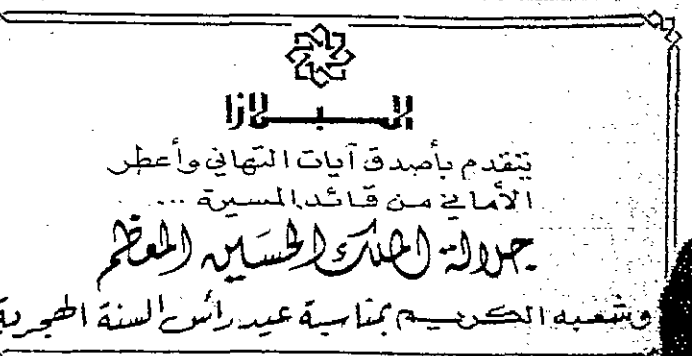 البلازا
تتقدم بأصدق آيات التهاني وأعطر
الأماني من قائد المسيرة ...
جلالة الملك الحسين المعظم
وشعبه الكريم بمناسبة عيد رأس السنة الهجرية